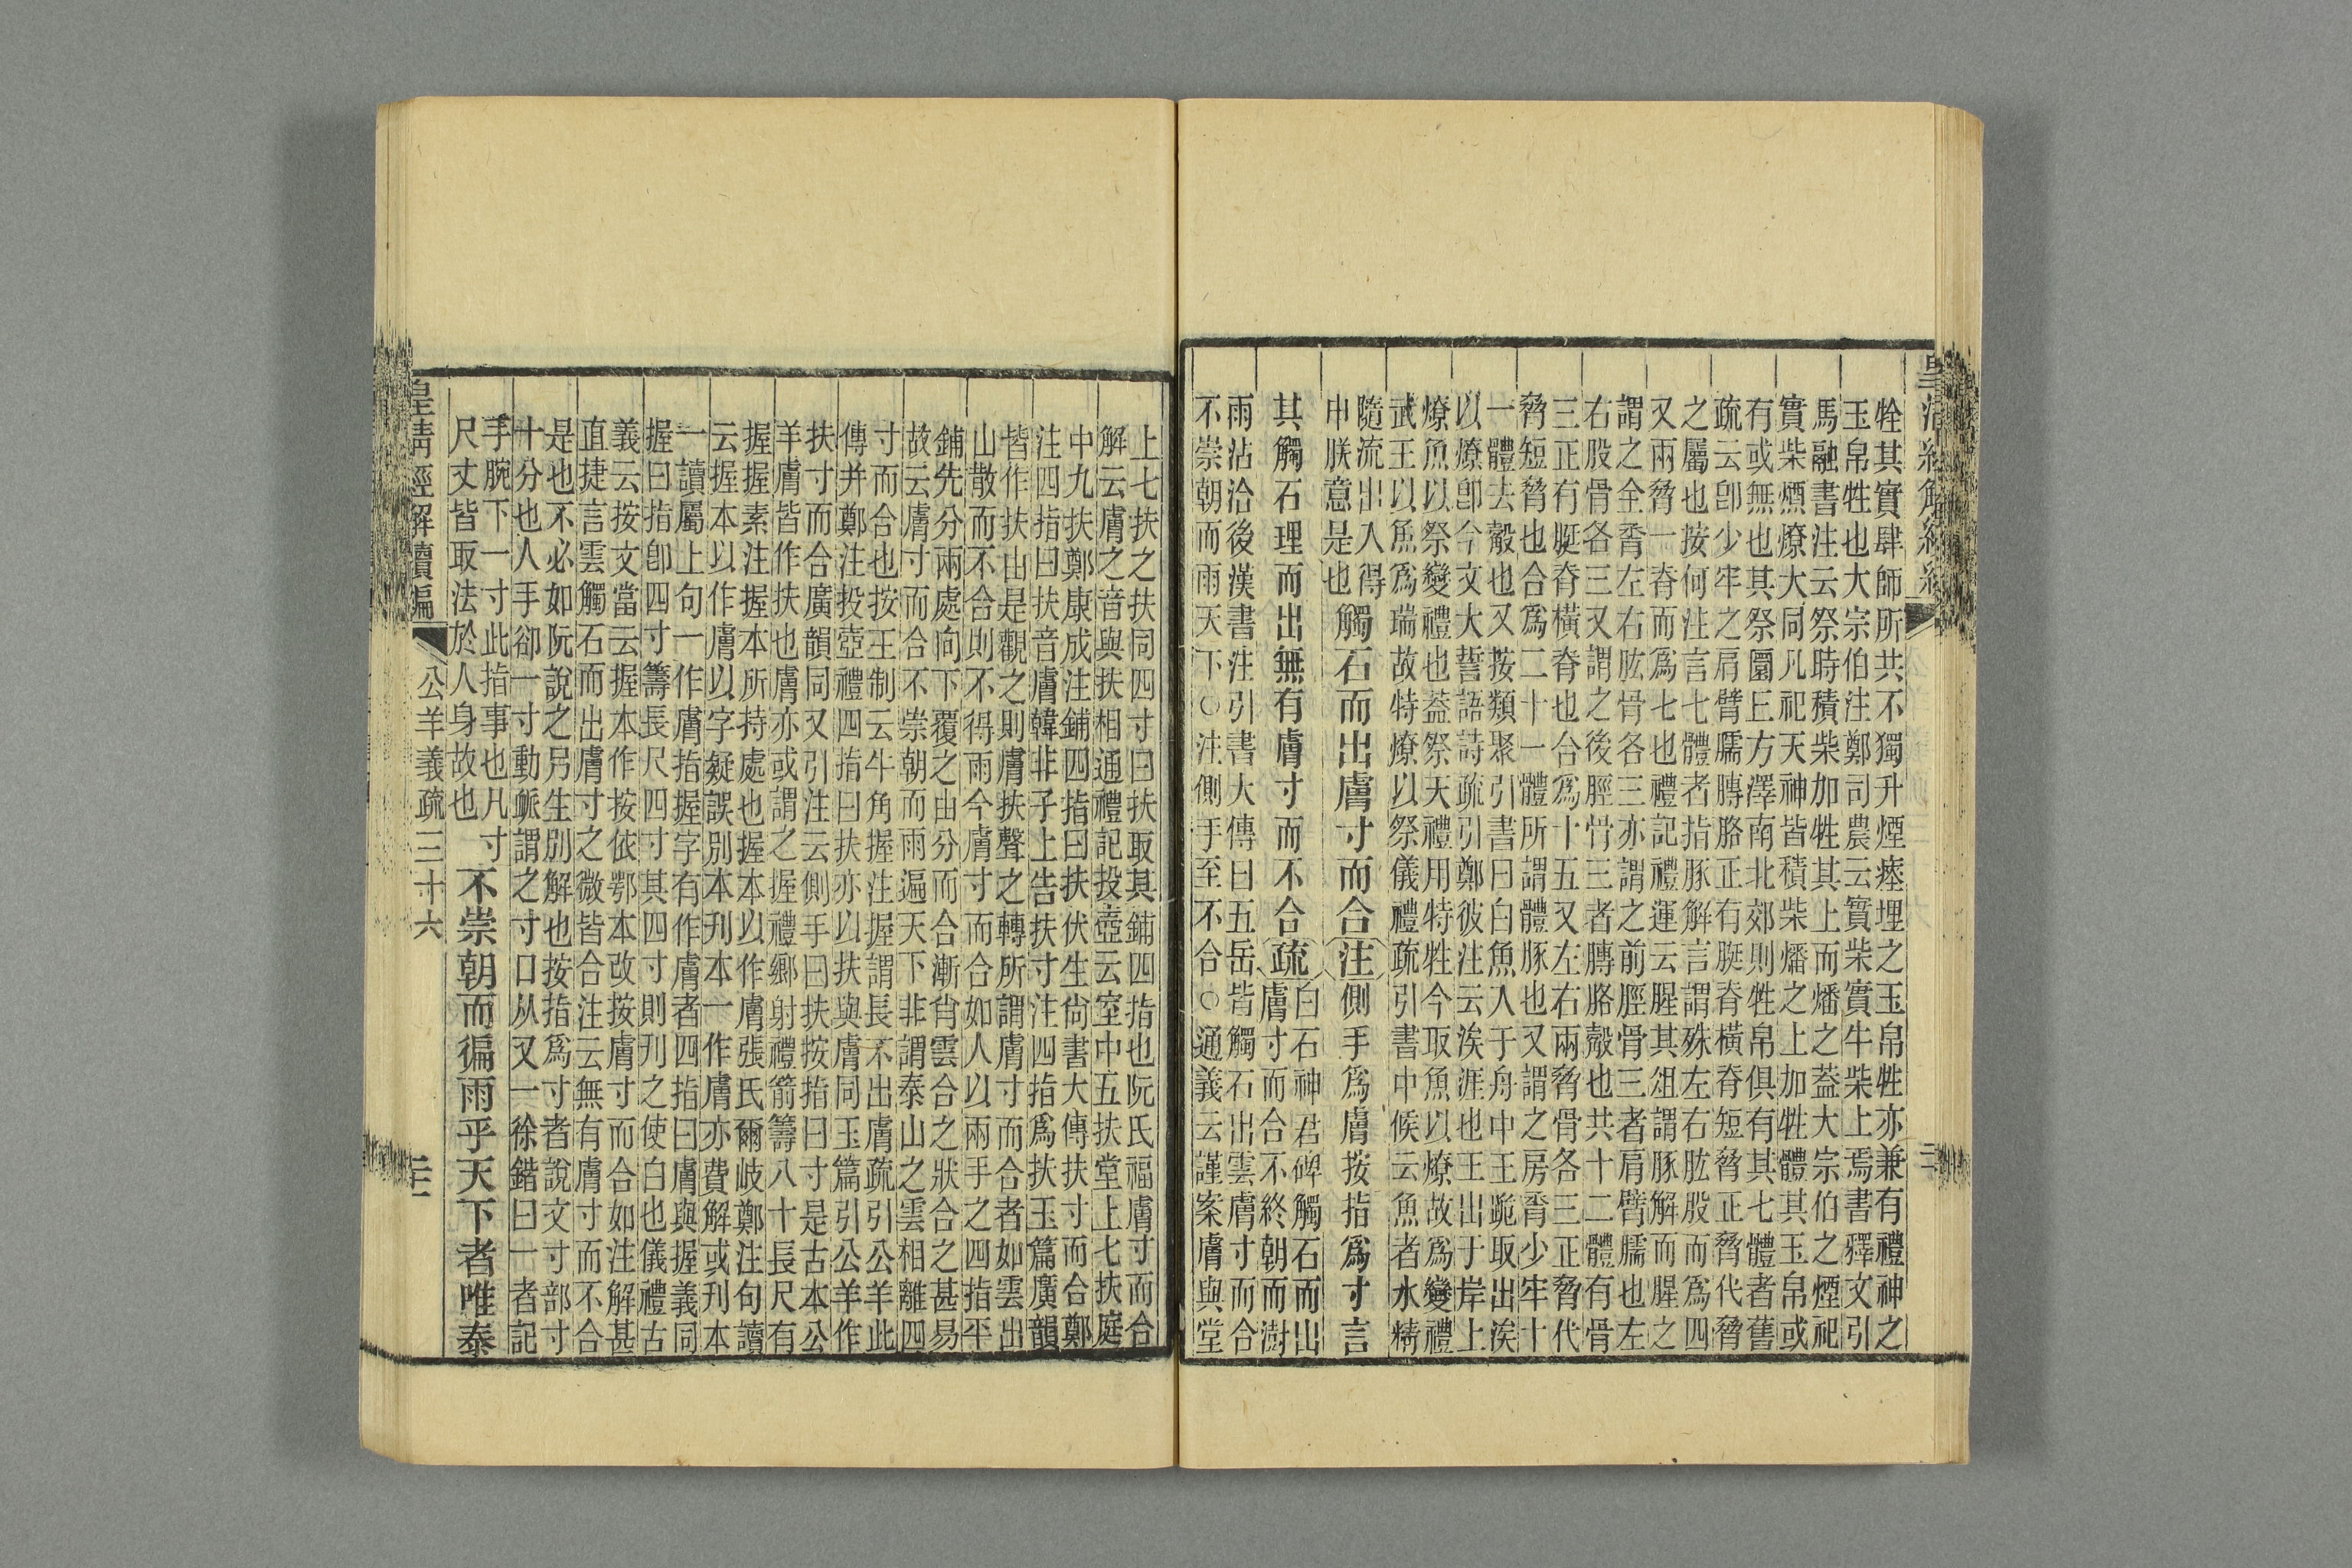 牷其實肆師所共不獨升煙瘞埋之玉帛牲亦兼有禮神之
玉帛牲也大宗伯注鄭司農云實柴實牛柴上焉書釋文引
馬融書注云祭時積柴加牲其上而燔之蓋大宗伯之煙祀
實柴煙燎大同凡祀天神皆積柴燔之上加牲體其玉帛或
有或無也其祭圜丘方澤南北郊則牲帛俱有其七體者舊
疏云卽少牢之肩臂臑膊胳正有脡脊橫脊短脅正脅代脅
之屬也按何注言七體者指豚解言謂殊左右肱股而爲四
又兩脅一脊而爲七也禮記禮運云腥其俎謂豚解而腥之
謂之全脀左右肱骨各三亦謂之前脛骨三者肩臂臑也左
右股骨各三又謂之後脛骨三者膊胳觳也共十二體有骨
三正有脡脊橫脊也合爲十五又左右兩脅骨各三正脅代
脅短脅也合爲二十一體所謂體豚也又謂之房脀少牢十
一體去觳也又按類聚引書曰白魚入于舟中王跪取出涘
以燎卽今文大誓語詩疏引鄭彼注云涘涯也王出于岸上
燎魚以祭變禮也蓋祭天禮用特牲今取魚以燎故爲變禮
武王以魚爲瑞故特燎以祭儀禮疏引書中候云魚者水精
隨流出入得
申朕意是也
觸石而出膚寸而合
注
側手爲膚按指爲寸言
其觸石理而出無有膚寸而不合
疏
白石神君碑觸石而出
膚寸而合不終朝而澍
雨沾洽後漢書注引書大傳曰五岳皆觸石出雲膚寸而合
不崇朝而雨天下○注側手至不合○通義云謹案膚與堂
上七扶之扶同四寸曰扶取其鋪四指也阮氏福膚寸而合
解云膚之音與扶相通禮記投壺云室中五扶堂上七扶庭
中九扶鄭康成注鋪四指曰扶伏生尙書大傳扶寸而合鄭
注四指曰扶音膚韓非子上告扶寸注四指爲扶玉篇廣韻
皆作扶由是觀之則膚扶聲之轉所謂膚寸而合者如雲出
山散而不合則不得雨今膚寸而合如人以兩手之四指平
鋪先分兩處向下覆之由分而合漸肖雲合之狀合之甚易
故云膚寸而合不崇朝而雨遍天下非謂泰山之雲相離四
寸而合也按王制云牛角握注握謂長不出膚疏引公羊此
傳并鄭注投壺禮四指曰扶亦以扶與膚同玉篇引公羊作
扶寸而合廣韻同又引注云側手曰扶按指曰寸是古本公
羊膚皆作扶也膚亦或謂之握禮鄉射禮箭籌八十長尺有
握握素注握本所持處也握本以作膚張氏爾岐鄭注句讀
云握本以作膚以字疑誤別本刋本一作膚亦費解或刋本
一讀屬上句一作膚指握字有作膚者四指曰膚與握義同
握曰指卽四寸籌長尺四寸其四寸則刋之使白也儀禮古
義云按文當云握本作按依鄂本改按膚寸而合如注解甚
直捷言雲觸石而出膚寸之微皆合注云無有膚寸而不合
是也不必如阮說之另生別解也按指爲寸者說文寸部寸
十分也人手卻一寸動脈謂之寸口从又一徐鍇曰一者記
手腕下一寸此指事也凡寸
尺丈皆取法於人身故也
不崇朝而徧雨乎天下者唯泰
皇淸經解續編
公羊義疏三十六